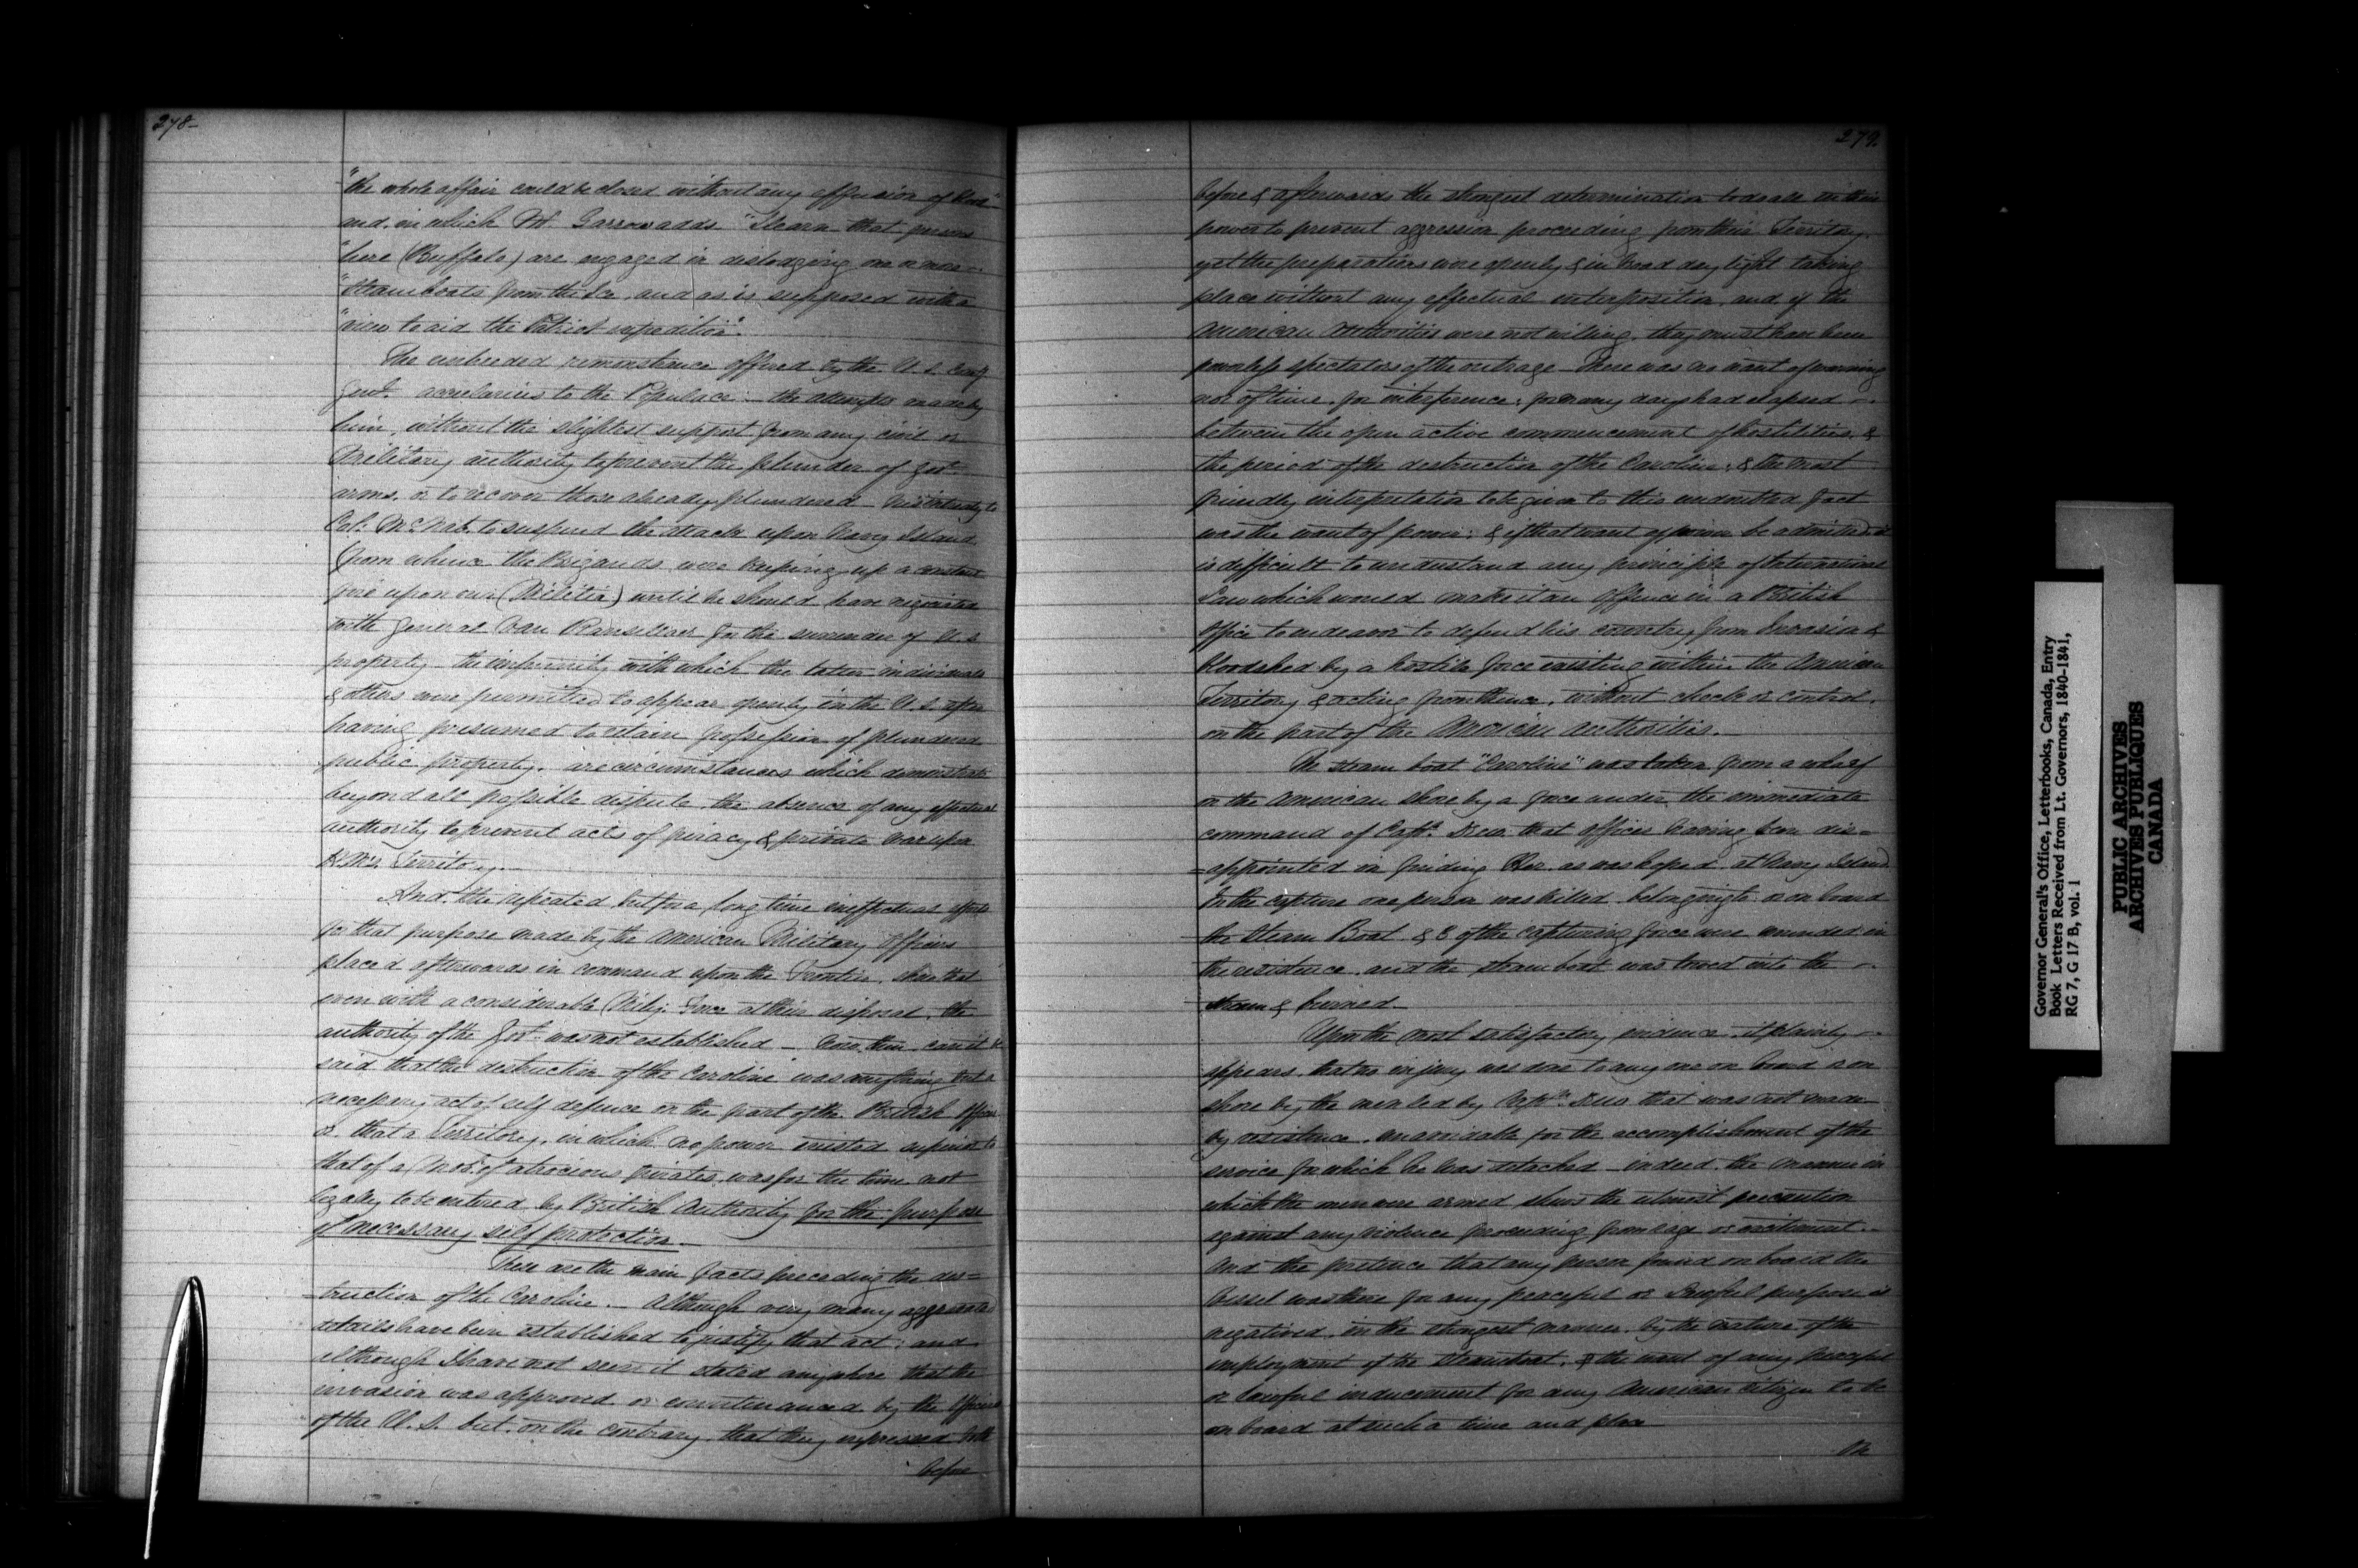 278-
"the whole affair could be closed without any effusion of blood"
and, in which Mr. Garrow adds "I learn that persons
"here (Buffalo) are engaged in dislodging one or more
"Steamboats from the Ice, and as is supposed with a
"view to aid the Patriot expedition".
The unheeded remonstrance offered by the U.S.
to the Populace - the attempts made by
him, without the slightest support from any civil or
Military authority to prevent the plunder of Govt
arms, or to recover those already plundered - his entreaty to
Col: McNab, to suspend the attack upon Navy Island
(from whence the Brigands were keeping up a constant
fire upon our Militia) until he should have negociated
with General Van Ranselleer for the surrender of U.S.
property - the impunity with which the latter individual
& others were permitted to appear openly in the U.S. after
having presumed to retain possession of plundered
public property, are circumstances which demonstrate
beyond all possible dispute the absence of any effectual
authority to prevent acts of piracy & private war upon
H.M's. Territory.-
And the repeated but for a long time ineffectual efforts
for that purpose made by the American Military Officers
placed afterwards in command upon the Frontier, show that
even with a considerable Mily. Force at their disposal, the
authority of the Govt. was not established - how, then, can it be
said that the destruction of the Caroline was anything but a
necessary act of self defence on the part of the British Officers
or, that a Territory, in which no power existed superior to
that of a Mob of atrocious pirates, was for the time not
legally to be entered by British Authority for the purpose
of necessary self protection.-
These are the main facts preceding the des=
=truction of the Caroline.- Although very many aggravated
details have been established to justify that act; and
although I have not seen it stated anywhere that the
invasion was approved or countenanced by the Officers
of the U.S. but, on the contrary, that they expressed both
before
279.
before & afterwards the strongest determination to do all in their
power to prevent aggression proceeding from their Territory,
yet the preparations were openly & in broad day light taking
place without any effectual interposition, and if the
American Authorities were not willing, they must have been
powerless spectators of the outrage - There was no want of warning
nor of time, for interference; for many days had elapsed -
between the open active commencement of hostilities, &
the period of the destruction of the Caroline; & the most
friendly interpretation to be given to this undoubted fact
was the want of power; & if that want of power be admitted it
is difficult to understand any principle of International
Law which would make it an offence in a British
Officer to endeavor to defend his country from Invasion &
bloodshed by a hostile force existing within the American
Territory & acting from thence, without check or control,
on the part of the American Authorities.-
The steam boat "Caroline" was taken from a wharf
on the American shore by a force under the immediate
command of Captn. Drew, that officer having been dis=
=appointed in finding Her, as was hoped, at Navy Island
In the capture one person was killed belonging to or on board
the Steam Boat & of the capturing force were wounded in
the resistance, and the steamboat was towed into the -
stream & burned-
Upon the most satisfactory evidence, it plainly -
appears, that no injury was done to any one on board or on
shore by the men led by Captn. Drew that was not made
by resistance, unavoidable for the accomplishment of the
service for which he was detached - indeed, the manner in
which the men were armed shews the utmost precaution
against any violence proceeding from rage or excitement.-
And the pretence that any person found on board the
Vessel was there for any peaceful or lawful purpose is
negatived, in the strongest manner, by the nature of the
employment of the steamboat, & the want of any peaceful
or lawful inducement for any American citizen to be
on board at such a time and place
Governor General's Office, Letterbooks, Canada, Entry
Book Letters Received from Lt. Governors, 1840-1841,
RG 7, G 17 B, vol. 1
PUBLIC ARCHIVES
ARCHIVES PUBLIQUES
CANADA